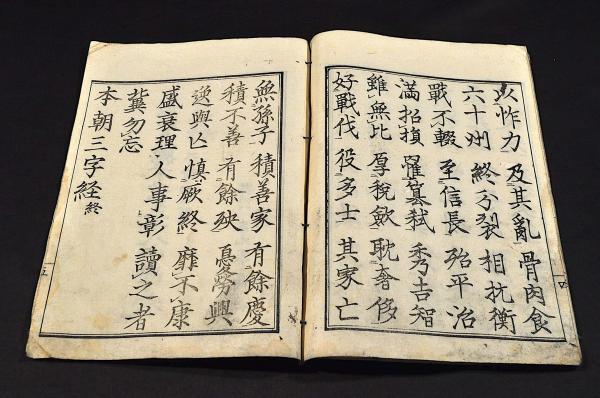 以詐力 及其亂 骨肉食
六十州 終分裂 相抗衡
戰不輟 至信長 殆平治
滿招損 罹篡弒 秀吉智
雖無比 厚稅斂 耽奢侈
好戰伐 役多士 其家亡
無孫子 積善家 有餘慶
積不善 有餘殃 憂勞興
逸與亡 慎厥終 靡不康
盛衰理 人事彰 讀之者
冀勿忘
本朝三字経終